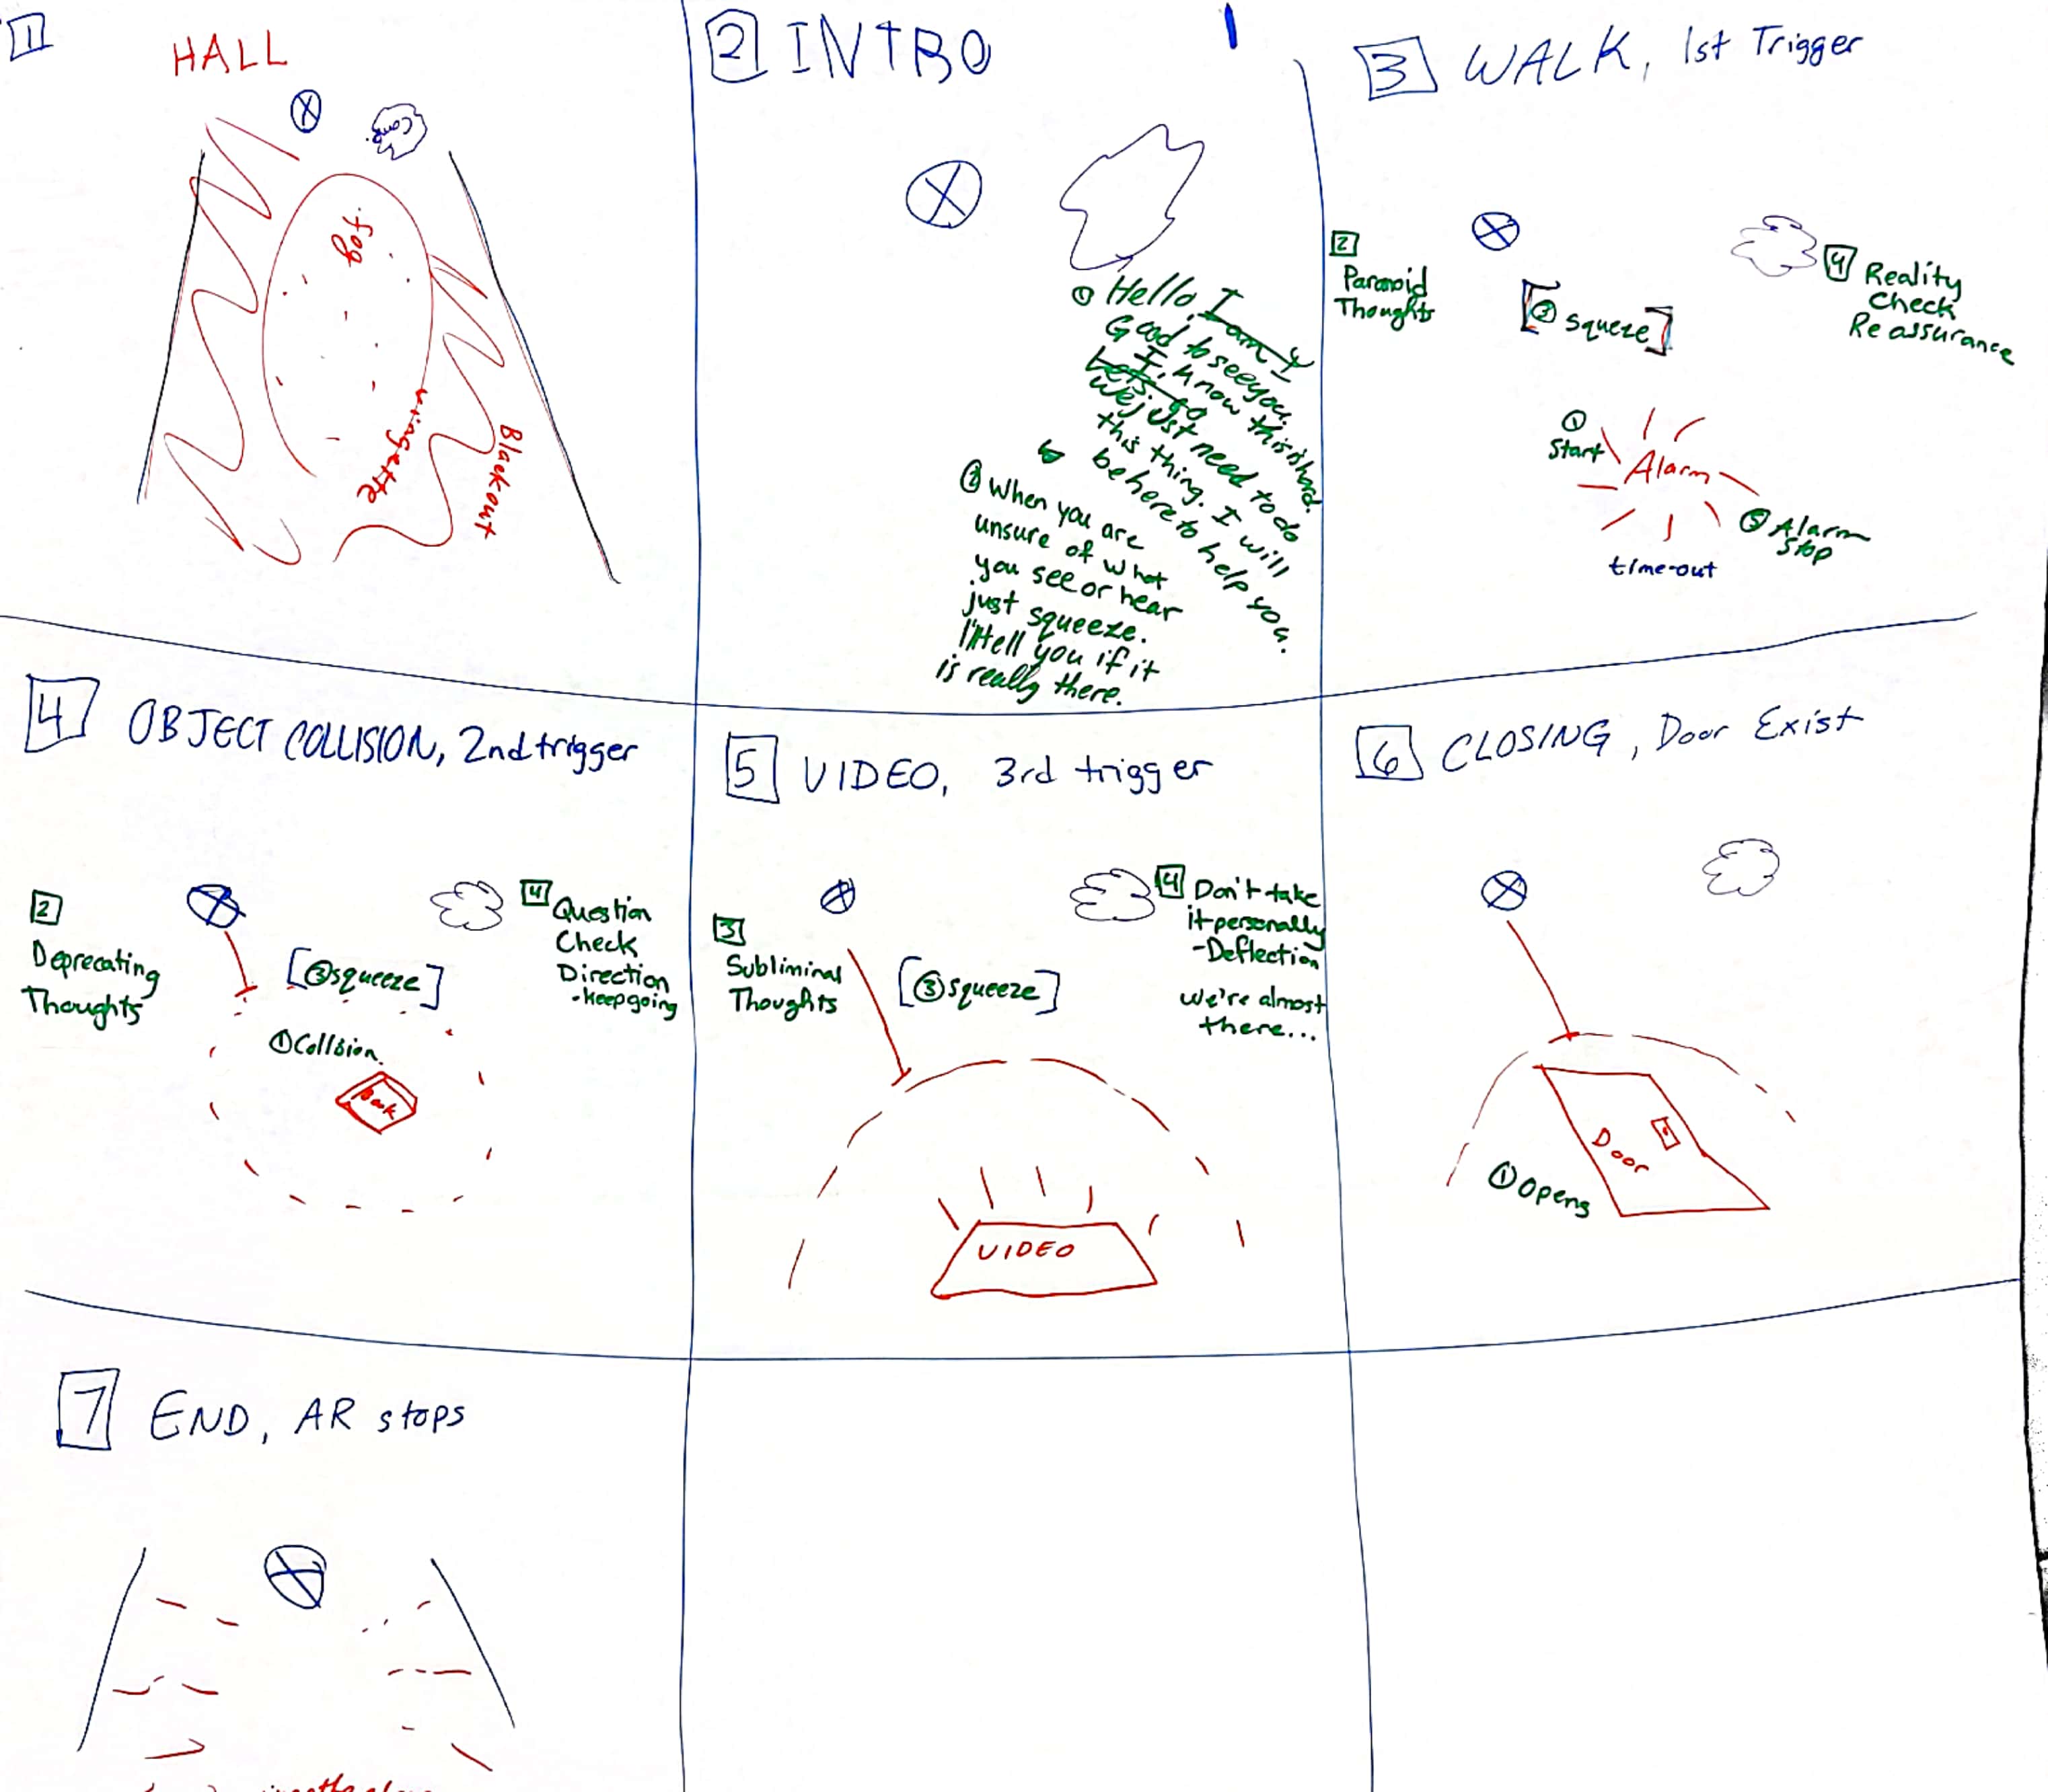 1
HALL
Comp.
fog
vingette
Blackout
2 INTRO
① Hello, I am
Good to see you.
I know this is hard.
Let's go
We just need to do
this thing. I will
be here to help you.
② When you are
unsure of what
you see or hear
just squeeze.
I'll tell you if it
is really there.
3 WALK, 1st Trigger
2
Paranoid
Thoughts
[③ squeze]
4 Reality
Check
Reassurance
①
Start
Alarm
⑤ Alarm
Stop
time-out
4 OBJECT COLLISION, 2nd trigger
2
Deprecating
Thoughts
[③ squeeze]
4 Question
Check
Direction
- keep going
① Collsion
Book
5 VIDEO, 3rd trigger
3
Subliminal
Thoughts
[③ squeeze]
4 Don't take
it personally
- Deflection
we're almost
there...
VIDEO
6 CLOSING, Door Exist
Door
① Opens
7 END, AR stops